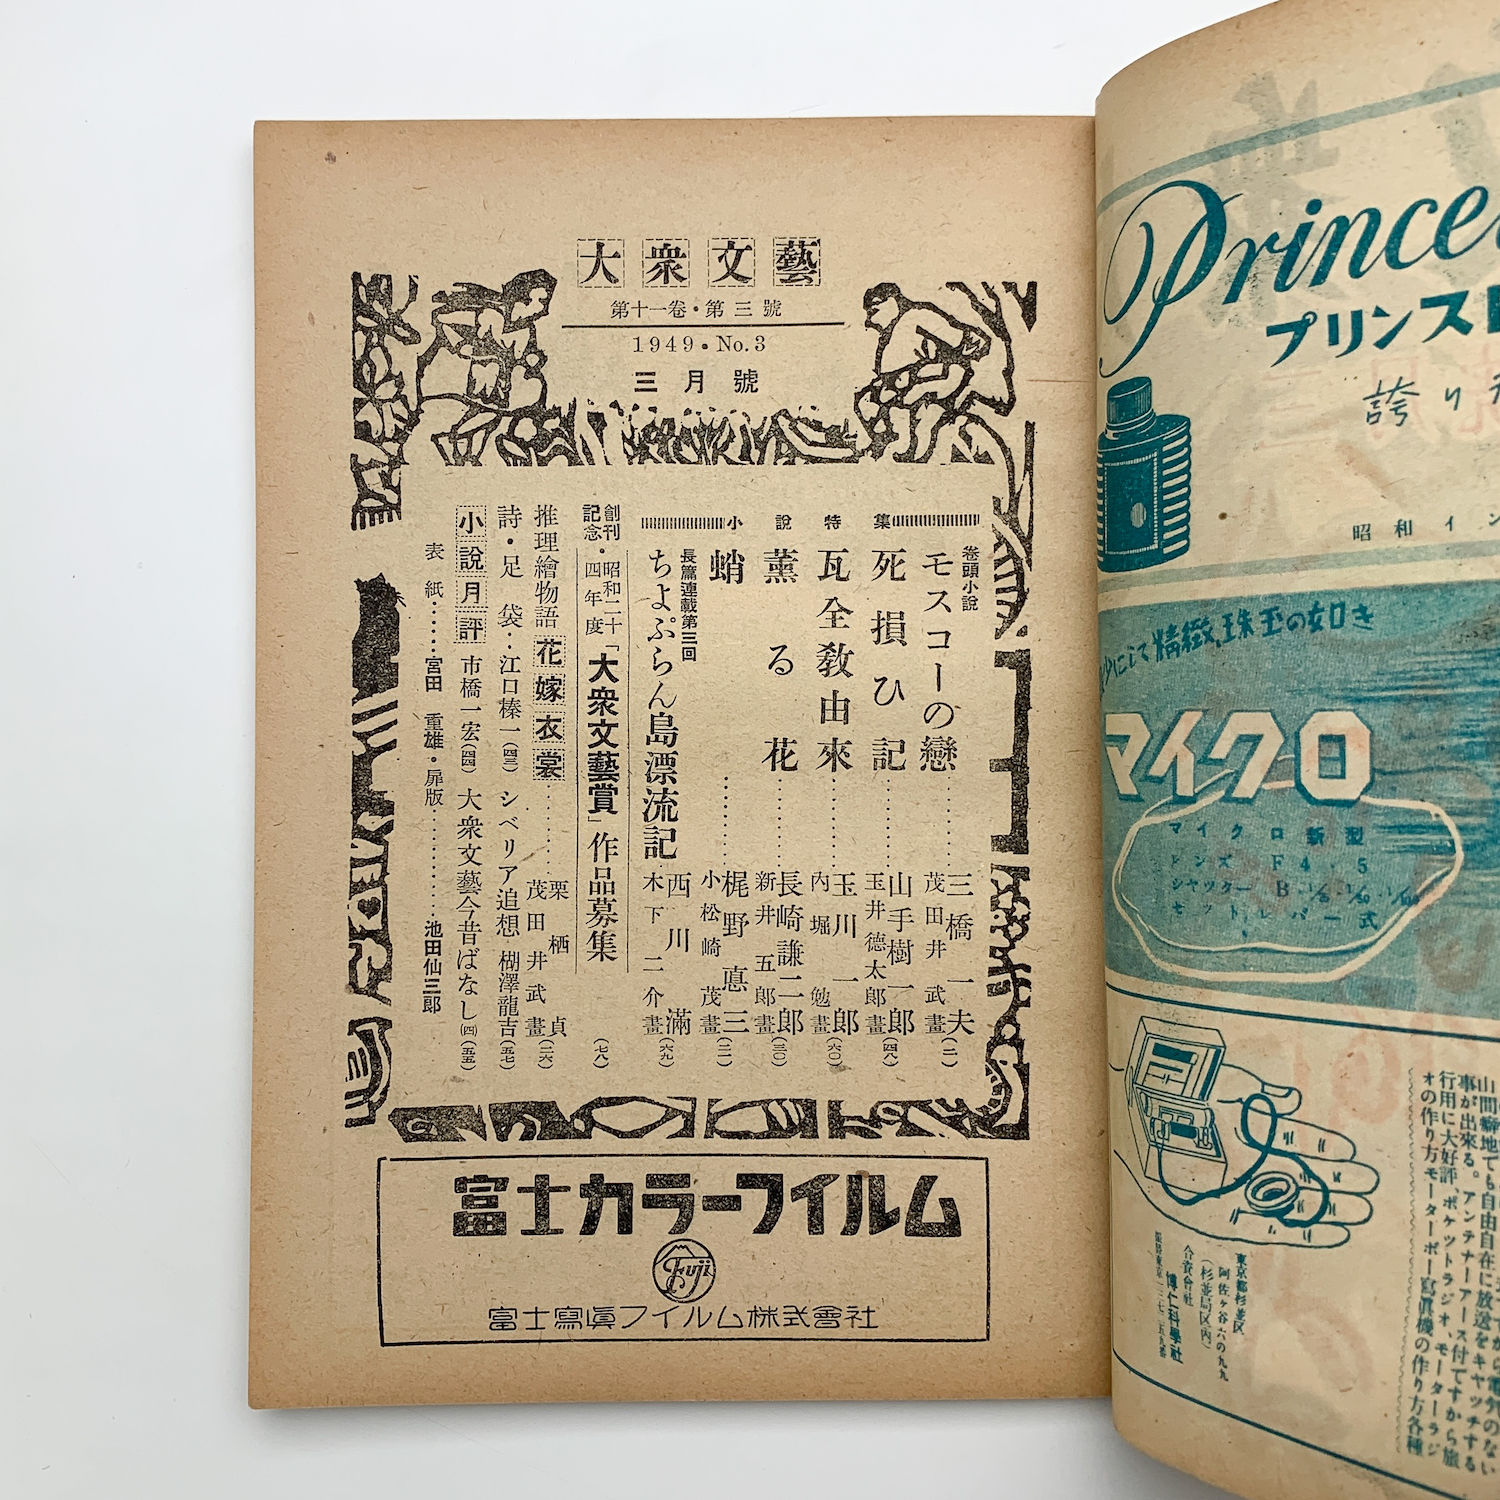 大衆文藝
第十一卷・第三號
1949・No.3
三月號
小說特集
卷頭小說
モスコーの戀
三橋一夫
茂田井武畫
(二)
死損ひ記
山手樹一郎
玉井德太郎畫
(四八)
瓦全敎由來
玉川一郎
內堀勉畫
(六〇)
薰る花
長崎謙二郎
新井五郎畫
(三〇)
蛸
梶野悳三
小松崎茂畫
(二一)
長篇連載第三回
ちよぷらん島漂流記
西川滿
木下二介畫
(六九)
創刊記念・昭和二十四年度「大衆文藝賞」作品募集
(七八)
推理繪物語 花嫁衣裳
栗栖貞
茂田井武畫
(二六)
詩・足袋・江口榛一(四三) シベリア追想 楜澤龍吉(五七)
小說月評 市橋一宏(四四) 大衆文藝今昔ばなし(四)(五五)
表紙……宮田重雄・扉版……池田仙三郞
富士カラーフイルム
Fuji
富士寫眞フイルム株式會社
プリンス
誇り
昭和イン
精緻、珠玉の如き
マイクロ
マイクロ新型
レンズ F4・5
シヤツター B
セツトレバー式
山間僻地でも自由自在に放送をキヤツチする
事が出來る。アンテナーアース付ですから旅
行用に大好評、ポケツトラジオ、モーターラジ
オの作り方モーターボー寫眞機の作り方各種
東京都杉並區
阿佐ヶ谷六の九九
(杉並局區內)
合資會社 博仁科學社